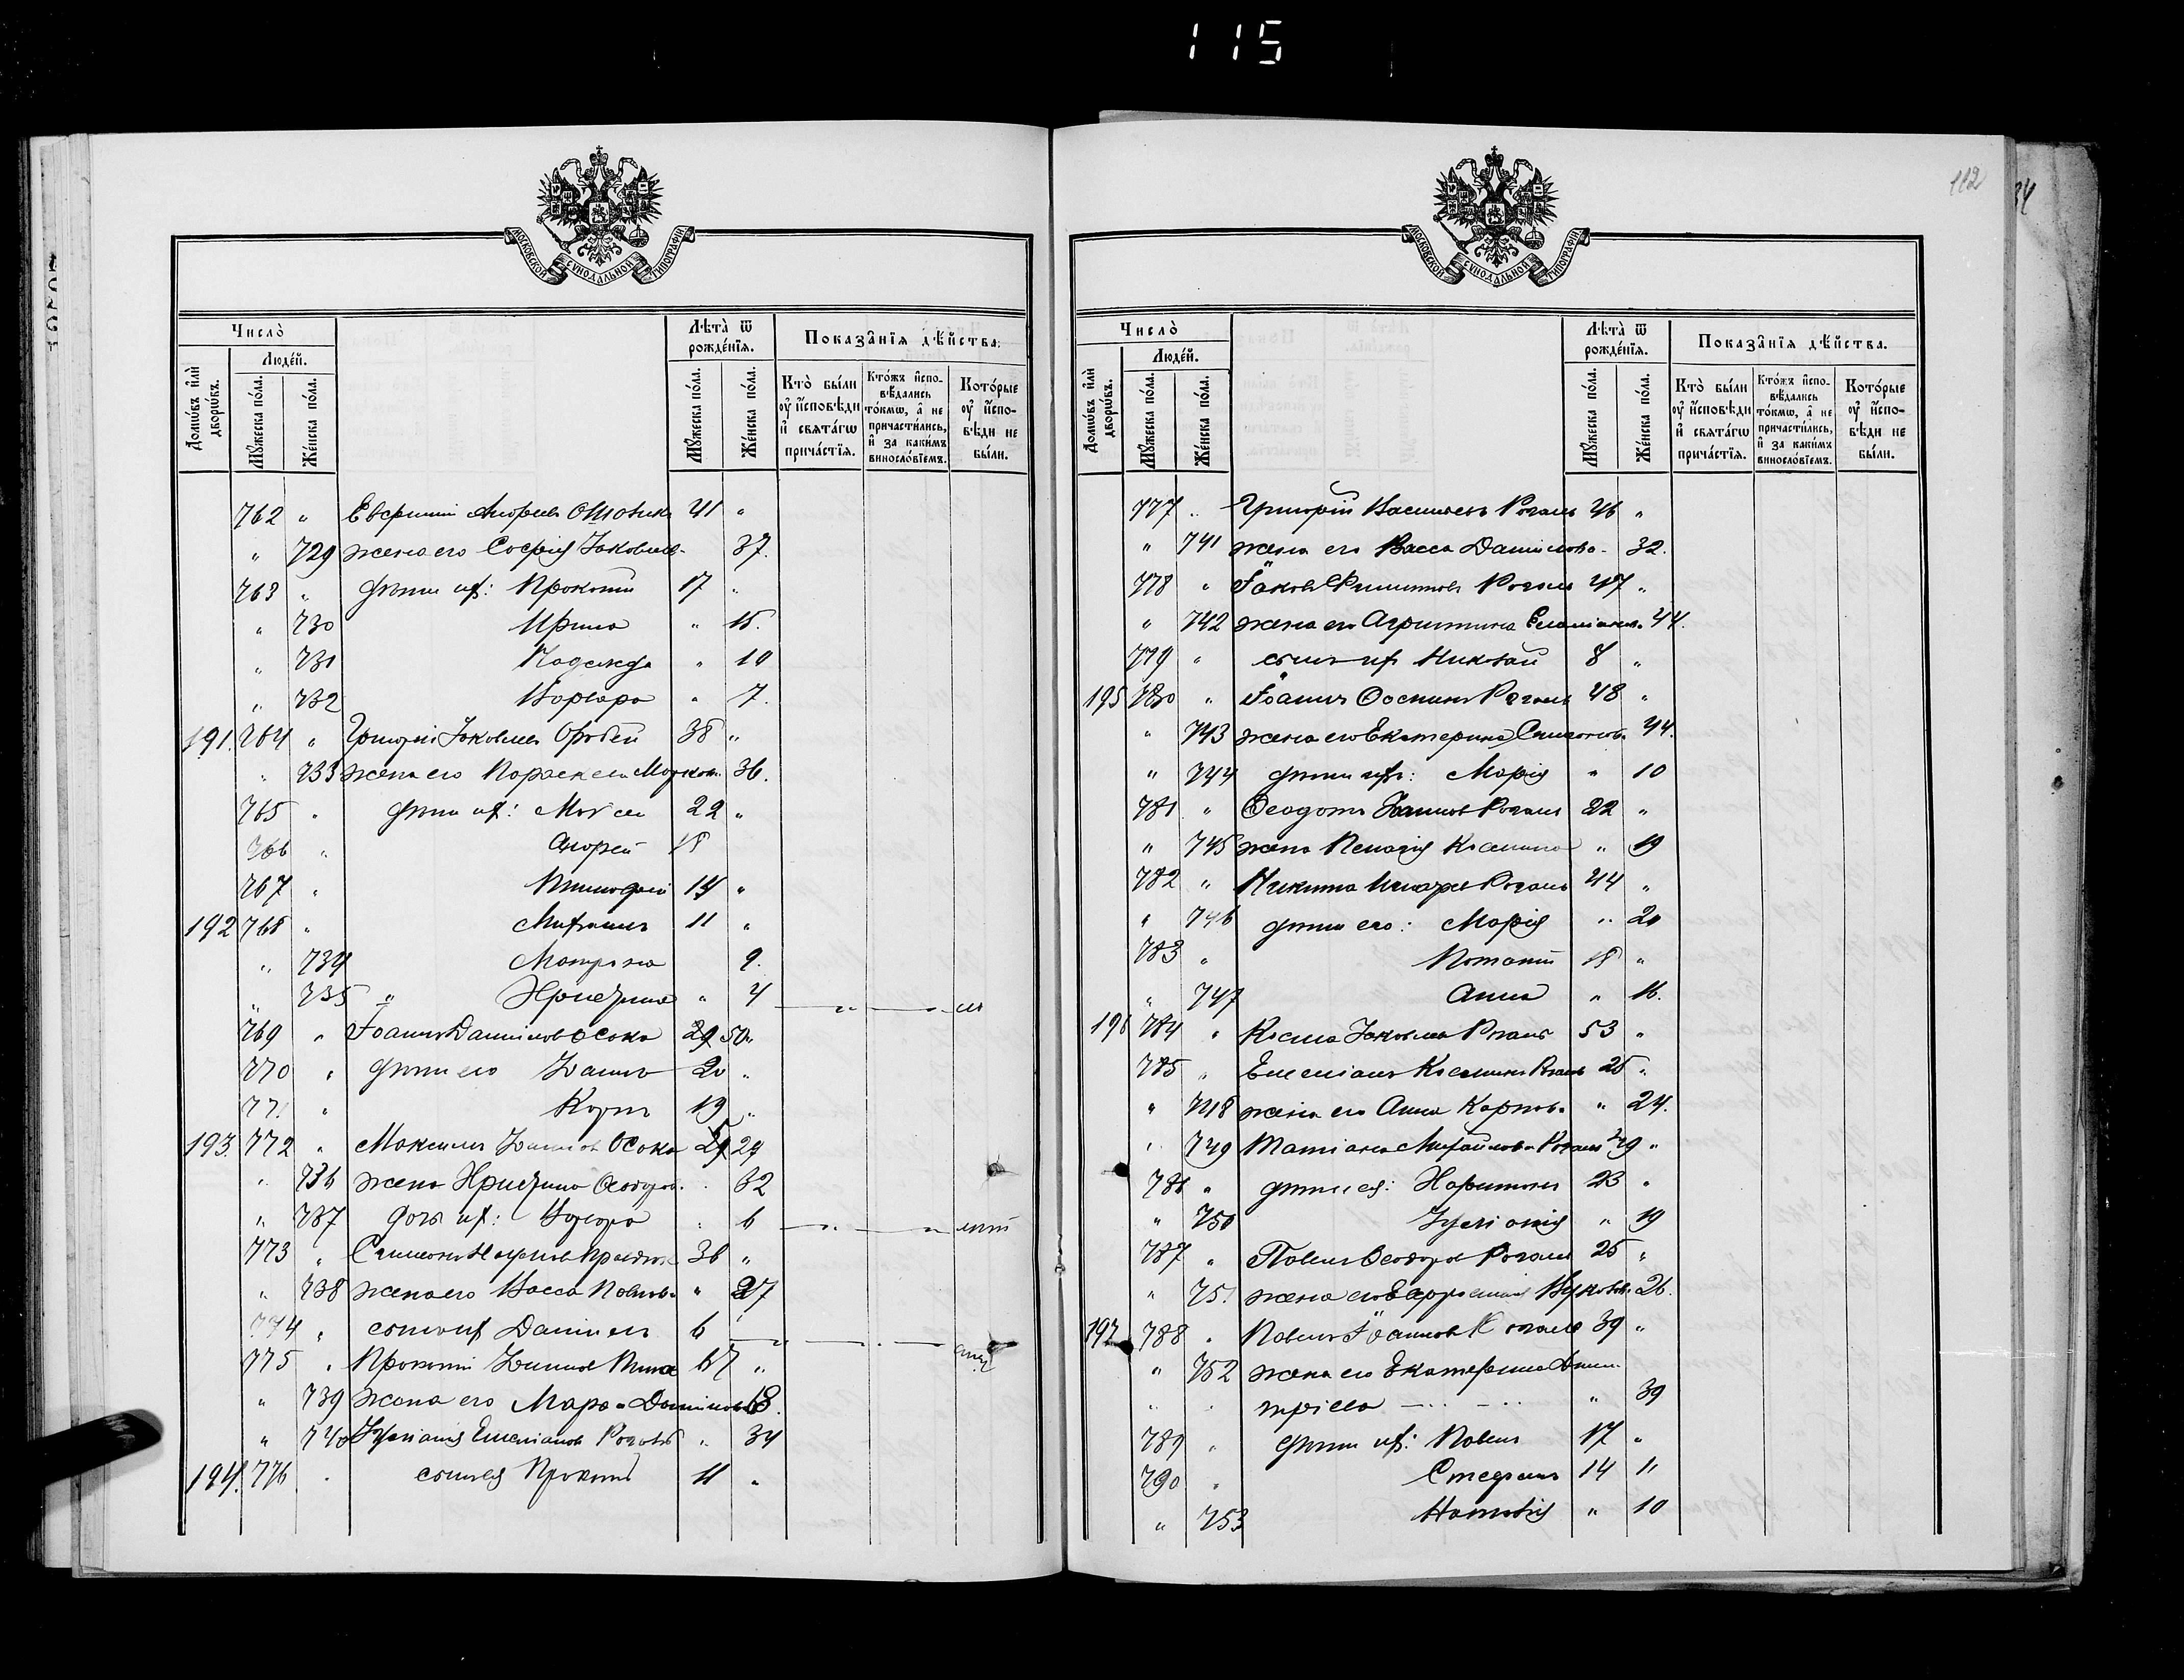 115
112
МОСКОВСКОЙ СѴНОДАЛЬНОЙ ТИПОГРАФІИ
Число̀
Людей.
Домѡвъ и҆лѝ дворѡвъ.
Мꙋжеска по́ла.
Же́нска по́ла.
Лѣта̀ ѿ рожде́нїѧ.
Мꙋжеска по́ла.
Же́нска по́ла.
Показа̂нїѧ дѣ́йства.
Кто̀ бы́ли ᲂу҆ и҆́сповѣди и҆ свѧта́гѡ прича́стїѧ.
Кто́жъ и҆спо-вѣ́дались то́кмѡ, а҆ не причасти́лись, и҆ за каки́мъ винословїемъ.
Кото́рые ᲂу҆ и҆́спо-вѣди не бы́ли.
762 " Евфимий Андреев 41 "
" 729 жена его София Яковлев. 37.
763 " дети их: Прокопий 17 "
" 730 Ирина " 15.
" 731 Надежда " 10
" 732 Варвара " 7.
191. 764 " Григорий Яковлев 38 "
" 733 жена его Параскева Марков. 36.
765 " дети их: Моисей 22 "
766 " Андрей 18
767 " 14 "
192 768 " Михаил 11 "
" 734 Матрона 9.
" 735 " Христина " 4
769 " Иоанн Даниилов Осока 29 50 "
770 " дети его Иоанн 20 "
771 " Карп 19 "
193. 772 " Максим Иванов Осока 29
" 736 жена Христина Феодоров. " 32
" 737 дочь их: Варвара " 6
773 " Симеон Наумов 36 "
" 738 жена его Васса Павлов. " 27
774 " сын их Даниил 6
775 " Прокопий Иванов 67 "
" 739 жена его Марфа Даниилов 68.
" 740 Иулиания Емелианов " 34
194. 776 " сын ея Прокопий 11 "
Число̀
Людей.
Домѡвъ и҆лѝ дворѡвъ.
Мꙋжеска по́ла.
Же́нска по́ла.
Лѣта̀ ѿ рожде́нїѧ.
Мꙋжеска по́ла.
Же́нска по́ла.
Показа̂нїѧ дѣ́йства.
Кто̀ бы́ли ᲂу҆ и҆́сповѣди и҆ свѧта́гѡ прича́стїѧ.
Кто́жъ и҆спо-вѣ́дались то́кмѡ, а҆ не причасти́лись, и҆ за каки́мъ винословїемъ.
Кото́рые ᲂу҆ и҆́спо-вѣди не бы́ли.
МОСКОВСКОЙ СѴНОДАЛЬНОЙ ТИПОГРАФІИ
777 " Григорий Васильев Рогаль 46 "
" 741 жена его Васса Даниилова 32.
778 " Иаков Филиппов Рогаль 47 "
" 742 жена его Агриппина Емелианов. 44.
779 " сын их Николай 8 "
195 780 " Иоанн Рогаль 48 "
" 743 жена его Екатерина Симеонов. 44.
" 744 дети их: Мария " 10
781 " Феодот Иоаннов Рогаль 22 "
" 745 жена Пелагия Косьмина " 19
782 " Никита Рогаль 44 "
" 746 дети его: Мария " 20
783 " Потапий 18 "
" 747 Анна " 16.
196 784 " Косма Яковлев Рогаль 53 "
785 " Емелиан Косьмин Рогаль 25 "
" 748 жена его Анна Карпова " 24.
" 749 Татиана Михайлова Рогаль 49 "
786 " дети ея: Харитон 23 "
" 750 Иулиания " 19
787 " Павел Феодоров Рогаль 25 "
" 751 жена его Евфросиния 26.
197 788 " Павел Иоаннов Рогаль 39 "
" 752 жена его Екатерина Дими-
" " триева " 39
789 " дети их: Павел 17 "
790 " Стефан 14 "
" 753 Наталия " 10